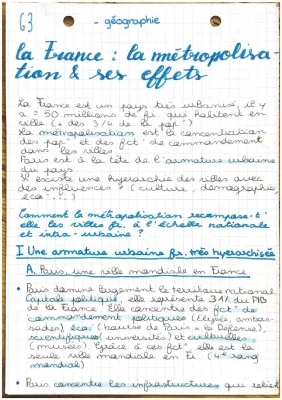 G3
- géographie
la France : la métropolisa-
tion & ses effets
La France est un pays très urbanisé, il y
a ≈ 50 millions de fr. qui habitent en
ville (+ des 3/4 de la pop°)
La métropolisation est la concentration
des pop° et des fct° de commandement
dans les villes
Paris est à la tête de l'armature urbaine
du pays
Il existe une hyerarchie des villes avec
des influences ≠ (culture, démographie,
éco°...)
Comment la métropolisation recompose-t-
elle les villes fr. à l'échelle nationale
et intra-urbaine ?
I Une armature urbaine fr. très hyerarchisée
A. Paris, une ville mondiale en France
• Paris domine largement le territoire national
Capitale politique, elle représente 31% du PIB
de la France. Elle concentre des fct° de
commandement politiques (Elysée, ambas-
sades) éco (bourse de Paris + la Défense),
scientifiques (universités) et culturelles
(musées). Grâce à ces fct° elle est la
seule ville mondiale en Fr (4e rang
mondial)
• Paris concentre les infrastructures qui relient